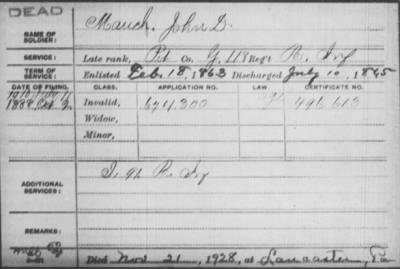 DEAD
NAME OF SOLDIER: Mauch, John D.
SERVICE: Late rank, Pvt Co. G, 118 Reg't Pa. Inf
TERM OF SERVICE: Enlisted Feb. 18, 1863 Discharged July 10, 1865
DATE OF FILING. CLASS. APPLICATION NO. LAW. CERTIFICATE NO.
1888, Invalid, 674,300 496,613
Widow,
Minor,
ADDITIONAL SERVICES: Pa. Inf
REMARKS:
Died Nov. 21, 1928, at Lancaster, Pa